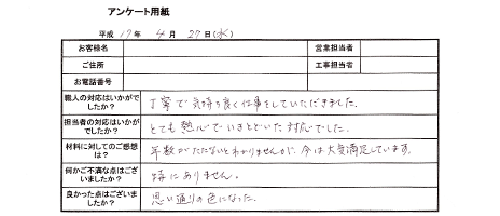 アンケート用紙
平成 17年 4月 27日(水)
お客様名 営業担当者
ご住所 工事担当者
お電話番号
職人の対応はいかがでしたか?
丁寧で気持ち良く仕事をしていただきました。
担当者の対応はいかがでしたか?
とても熱心でいきとどいた対応でした。
材料に対してのご感想は?
年数がたたないとわかりませんが、今は大変満足しています。
何かご不満な点はございましたか?
特にありません。
良かった点はございましたか?
思い通りの色になった。